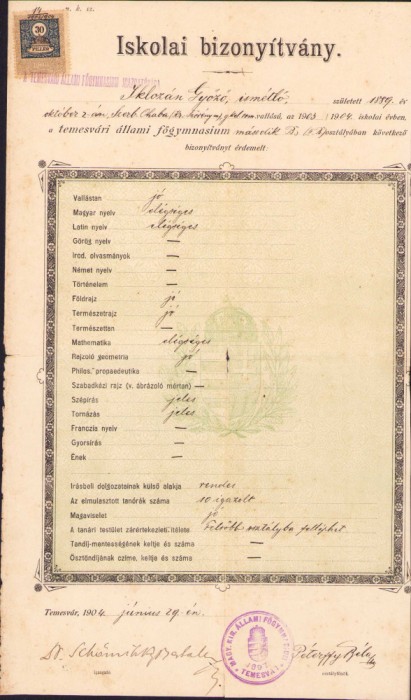 30
FILLÉR
A TEMESVÁRI ÁLLAMI FŐGYMNASIUM IGAZGATÓSÁGA
Iskolai bizonyítvány.
Iklozán Győző, ismétlő, született 1889. év
október 2-án, Szerb Csaba, gkel. vallású, az 1903/1904. iskolai évben,
a temesvári állami főgymnasium második B. osztályában következő
bizonyítványt érdemelt:
Vallástan jó
Magyar nyelv elégséges
Latin nyelv elégséges
Görög nyelv —
Irod. olvasmányok —
Német nyelv —
Történelem —
Földrajz jó
Természetrajz jó
Természettan —
Mathematika elégséges
Rajzoló geometria jó
Philos. propaedeutika —
Szabadkézi rajz (v. ábrázoló mértan) —
Szépírás jeles
Tornázás jeles
Franczia nyelv —
Gyorsírás —
Ének —
Irásbeli dolgozatainak külső alakja rendes
Az elmulasztott tanórák száma 10 igazolt
Magaviselet jó
A tanári testület zárértekezleti ítélete Felsőbb osztályba felléphet
Tandíj-mentességének kelte és száma —
Ösztöndíjának czíme, kelte és száma —
Temesvár, 1904. június 29-én.
MAGY. KIR. ÁLLAMI FŐGYMNASIUM
TEMESVÁR
Péterffy Béla
igazgató.
osztályfő.